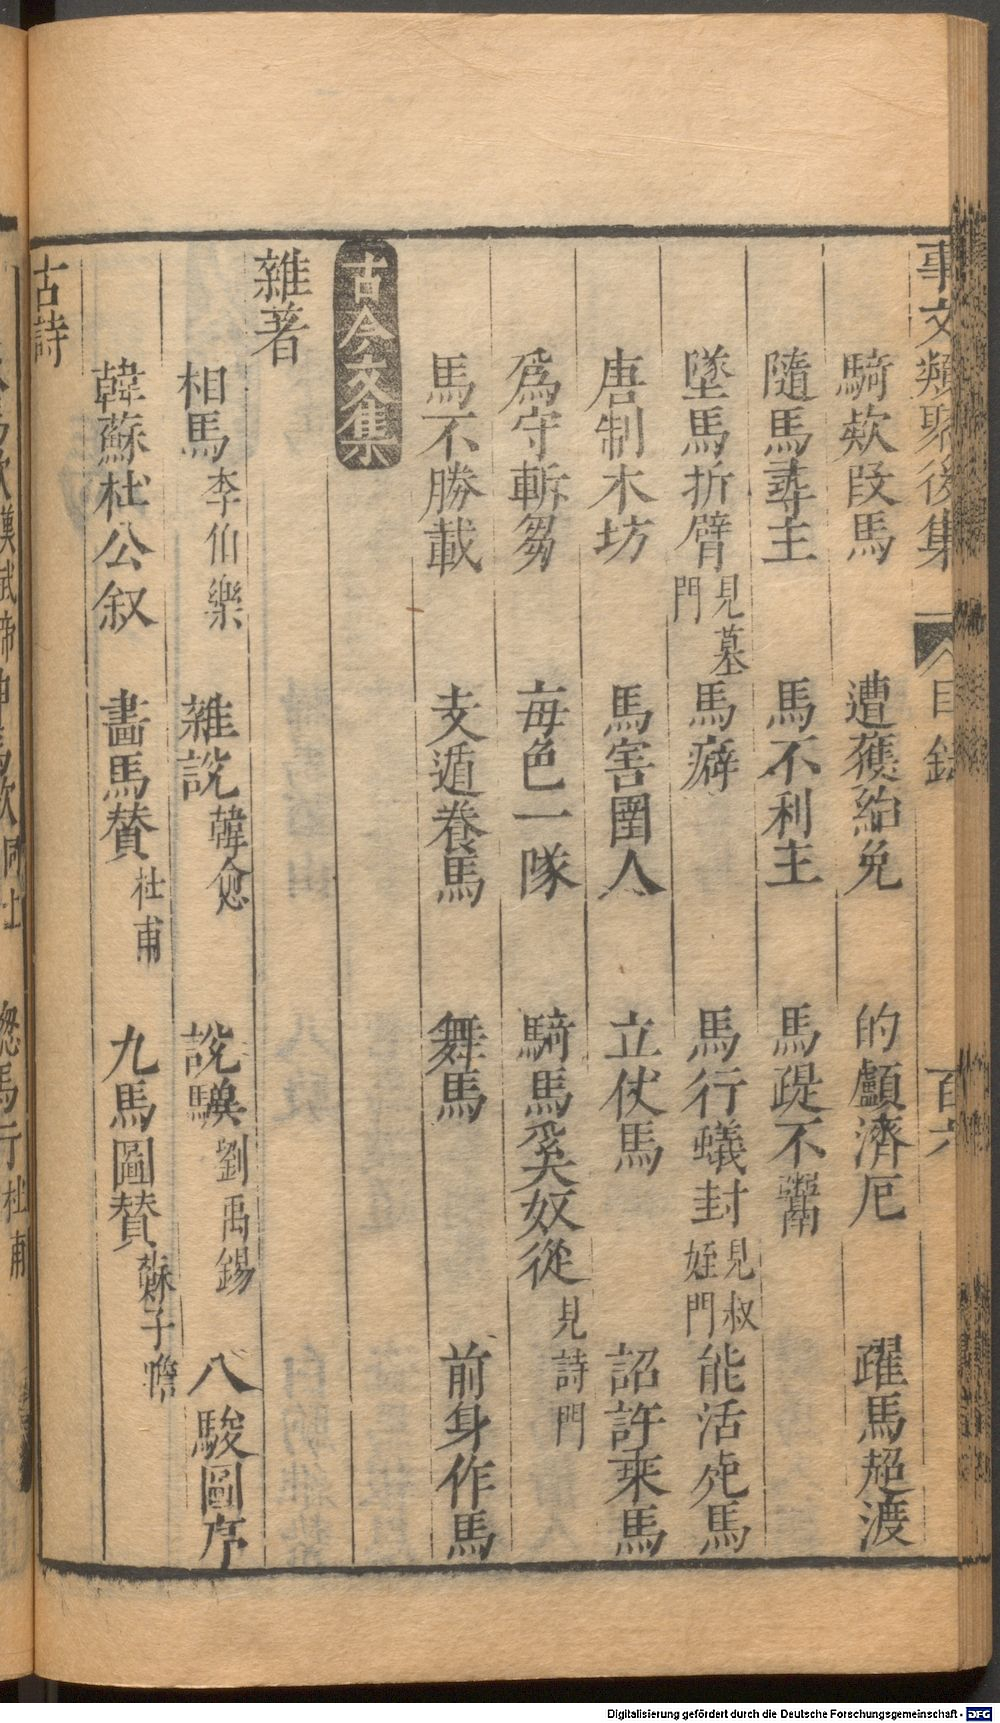 事文類聚後集 目錄 百六
騎欵段馬 遭獲紿免 的顱濟厄 躍馬超渡
隨馬尋主 馬不利主 馬踶不齧
墜馬折臂 見墓門 馬癖 馬行蟻封 見叔姪門 能活死馬
唐制木坊 馬害圉人 立仗馬 詔許乘馬
爲守斬芻 每色一隊 騎馬奚奴從 見詩門
馬不勝載 支遁養馬 舞馬 前身作馬
古今文集
雜著
相馬 李伯樂 雜說 韓愈 說驥 劉禹錫 八駿圖序
韓蘇杜公叙 畵馬賛 杜甫 九馬圖賛 蘇子瞻
古詩
Digitalisierung gefördert durch die Deutsche Forschungsgemeinschaft - DFG